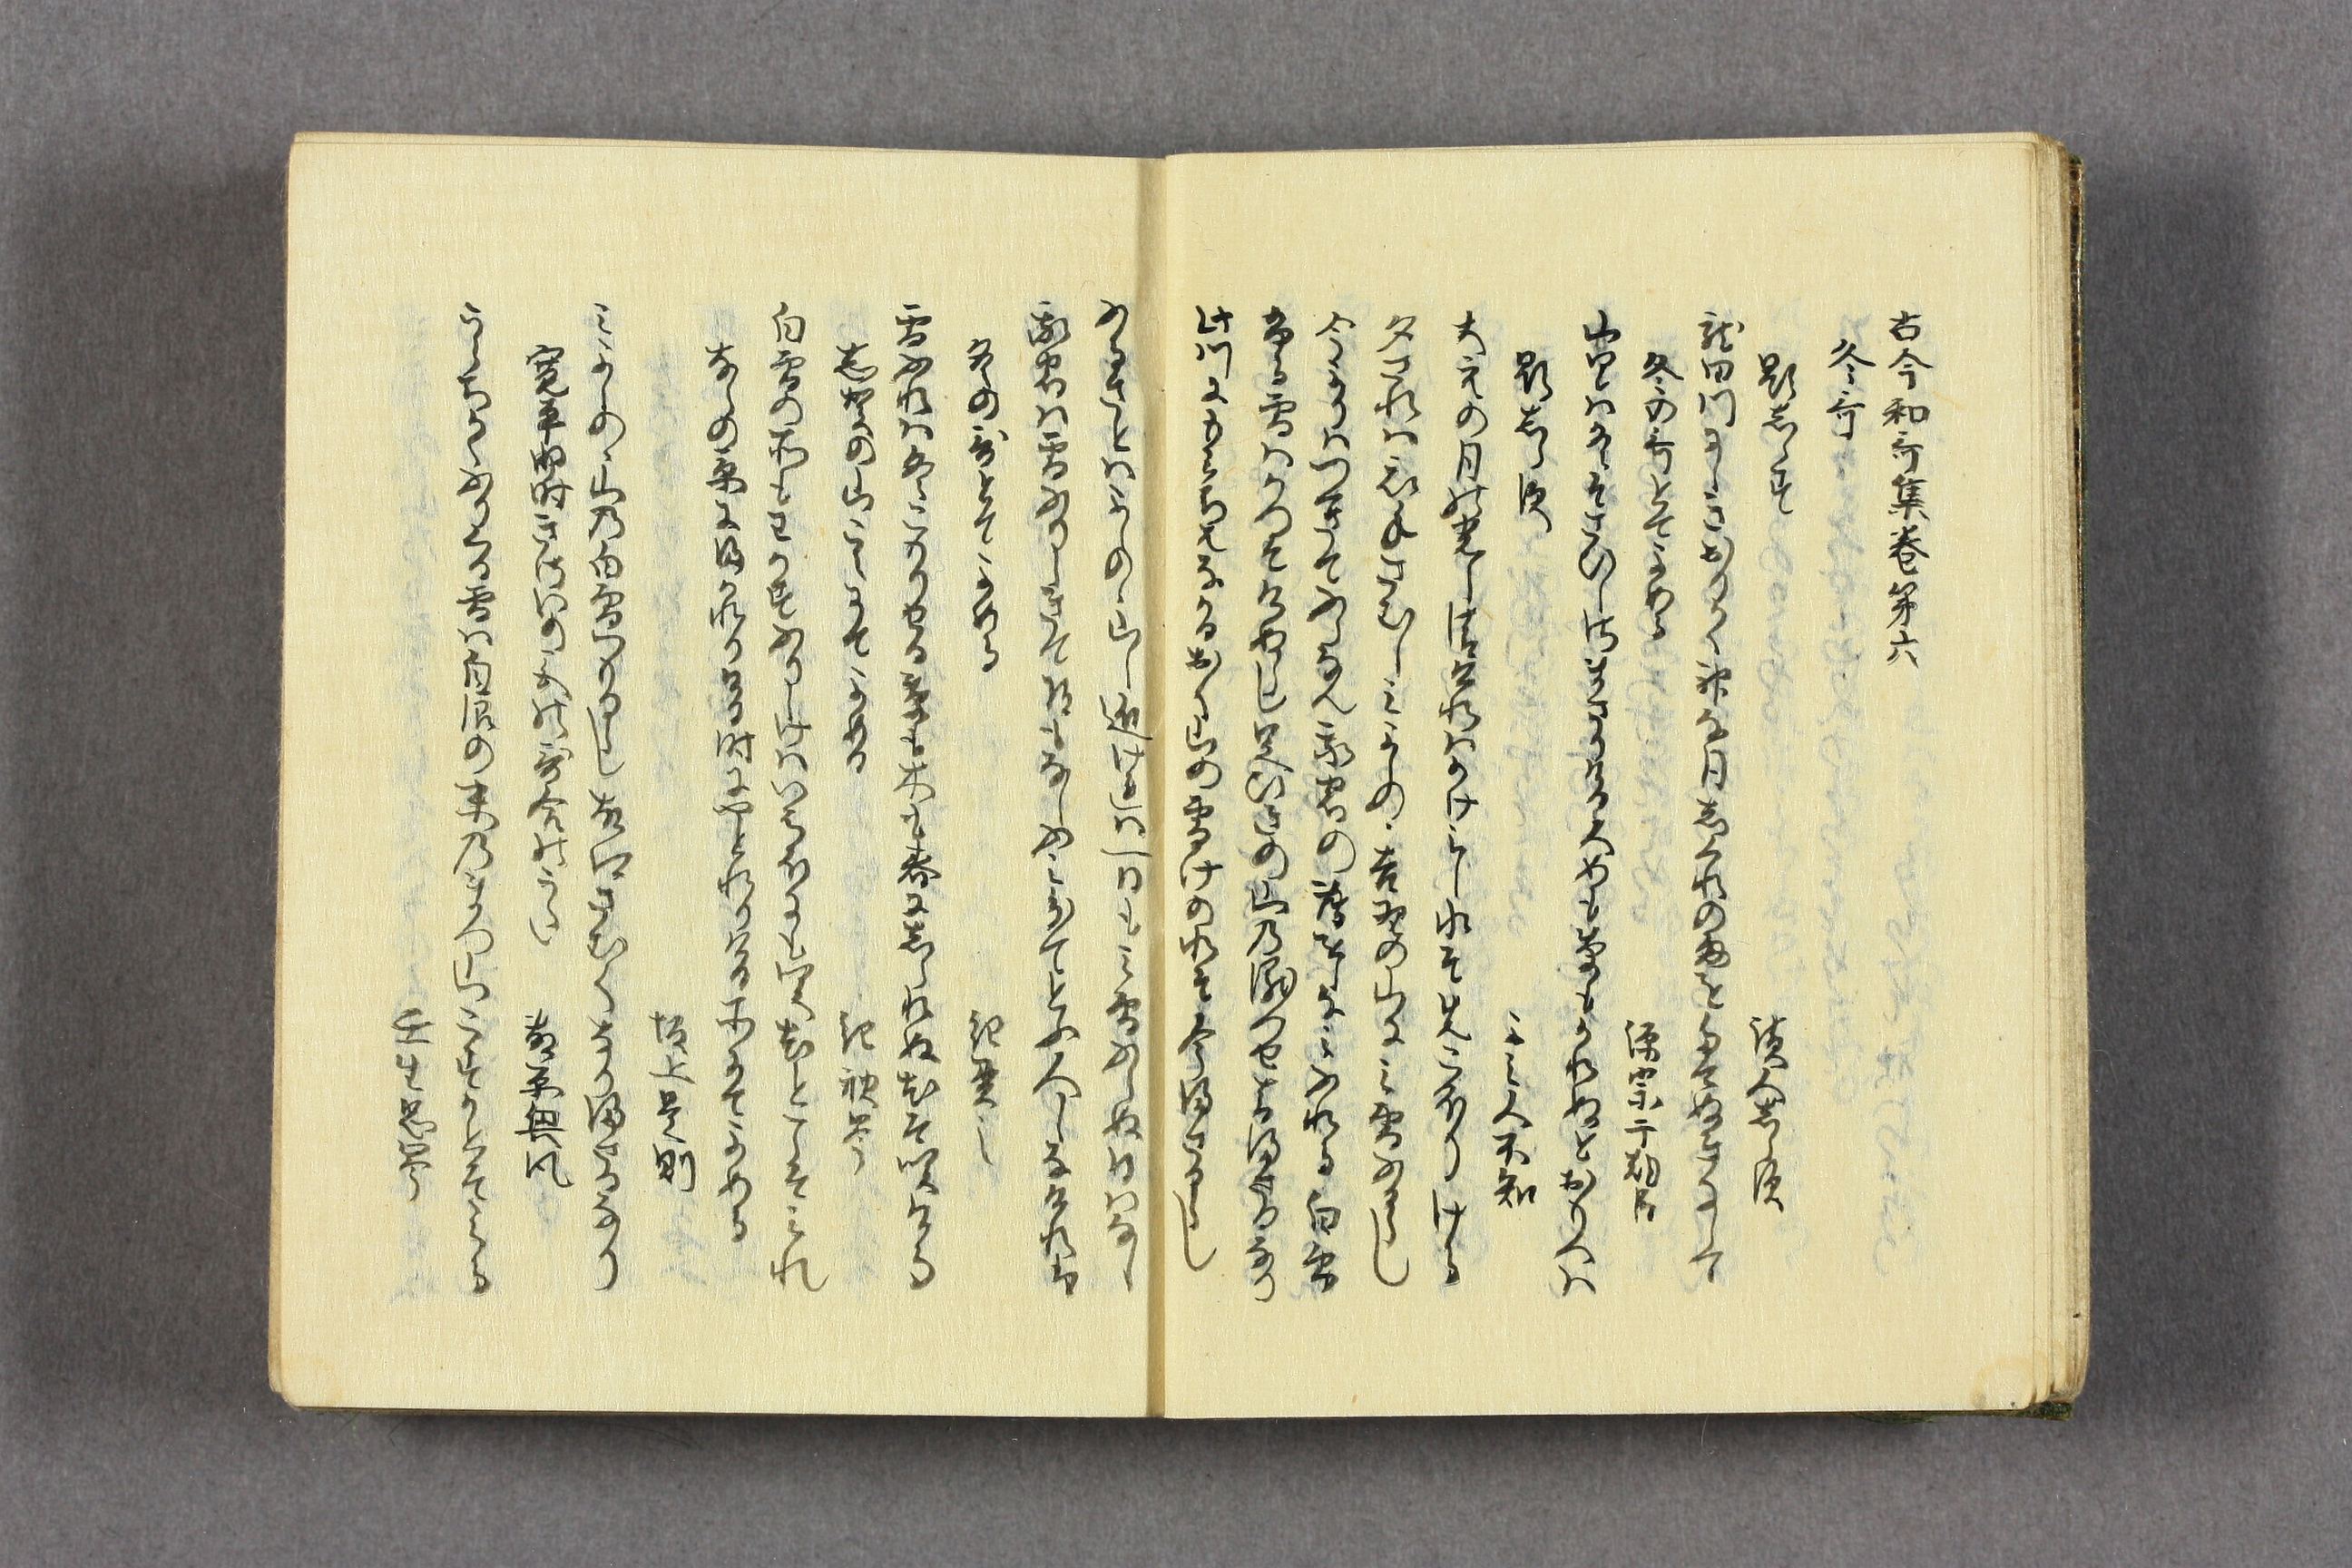 古今和哥集巻第六
冬哥
題しらす　讀人しらす
龍田川にしきおりかく神な月しくれの雨をたてぬきにして
冬の哥とてよめる　源宗于朝臣
山里は冬そさひしさまさりける人めも草もかれぬとおもへは
題しらす　よみ人不知
大そらの月の光し清けれは影みし水そ先こほりける
夕されは衣手さむしみよしのの吉野の山にみ雪ふるらし
今よりはつきてふらなん我やとの薄をしなみふれる白雪
ふる雪はかつそけぬらし足引の山の瀧つせをとまさるなり
此川にもみちはなかるおく山の雪けの水そ今まさるらし
ふるさとはよしのの山しちかけれは一日もみ雪ふらぬ日はなし
我宿は雪ふりしきて道もなしふみ分てとふ人しなけれは
冬の哥とてよめる　紀貫之
雪ふれは冬こもりせる草も木も春にしられぬ花そ咲ける
志賀の山こえにてよめる　紀秋岑
白雪の所もわかすふりしけはいはほにもさく花とこそみれ
ならの京にまかれりける時にやとれりける所にてよめる
坂上是則
みよしのの山の白雪つもるらし古郷さむくなりまさるなり
寛平御時きさいの宮の哥合のうた　藤原興風
浦ちかくふりくる雪は白浪の末の松山こすかとそみる
壬生忠岑